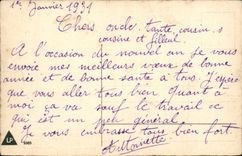 1er Janvier 1931
Chers oncle, tante, cousin,
cousine et filleul
A l'occasion du nouvel an je vous
envoie mes meilleurs vœux de bonne
année et de bonne santé à tous. J'espère
que vous allez tous bien. Quant à
moi ça va sauf le travail ce
qui est un peu général.
Je vous embrasse tous bien fort.
Antoinette
LP